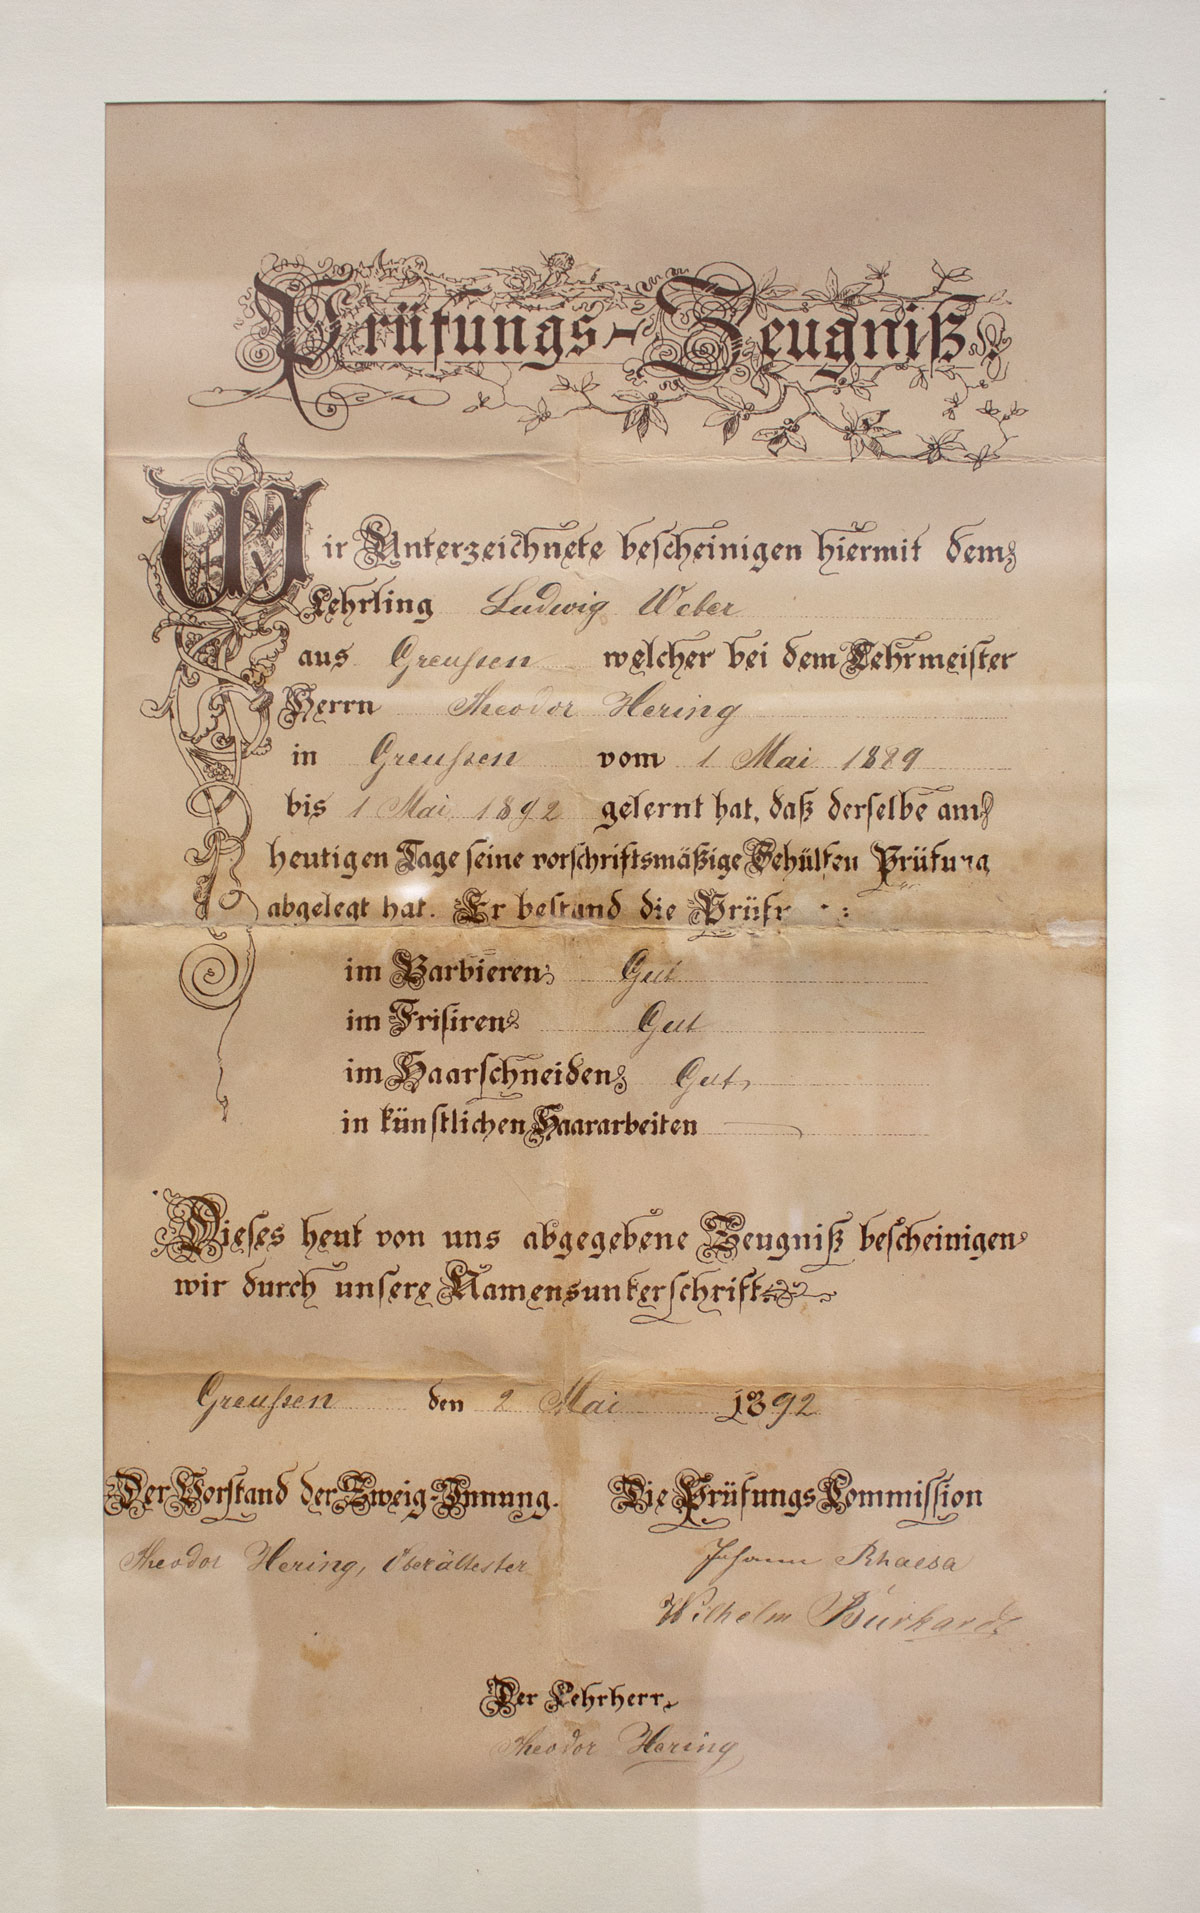 Prüfungs-Zeugniß
Wir Unterzeichnete bescheinigen hiermit dem
Lehrling Ludwig Weber
aus Greußen welcher bei dem Lehrmeister
Herrn Theodor Hering
in Greußen vom 1 Mai 1889
bis 1 Mai 1892 gelernt hat, daß derselbe am
heutigen Tage seine vorschriftsmäßige Gehülfen Prüfung
abgelegt hat. Er bestand die
im Barbieren Gut
im Frisiren Gut
im Haarschneiden Gut
in künstlichen Haararbeiten —
Dieses heut von uns abgegebene Zeugniß bescheinigen
wir durch unsere Namensunterschrift.
Greußen den 2 Mai 1892
Der Vorstand der Zweig-Innung.
Die Prüfungs Commission
Theodor Hering, Oberältester
Johann Rhaesa
Wilhelm Burkhardt
Der Lehrherr
Theodor Hering